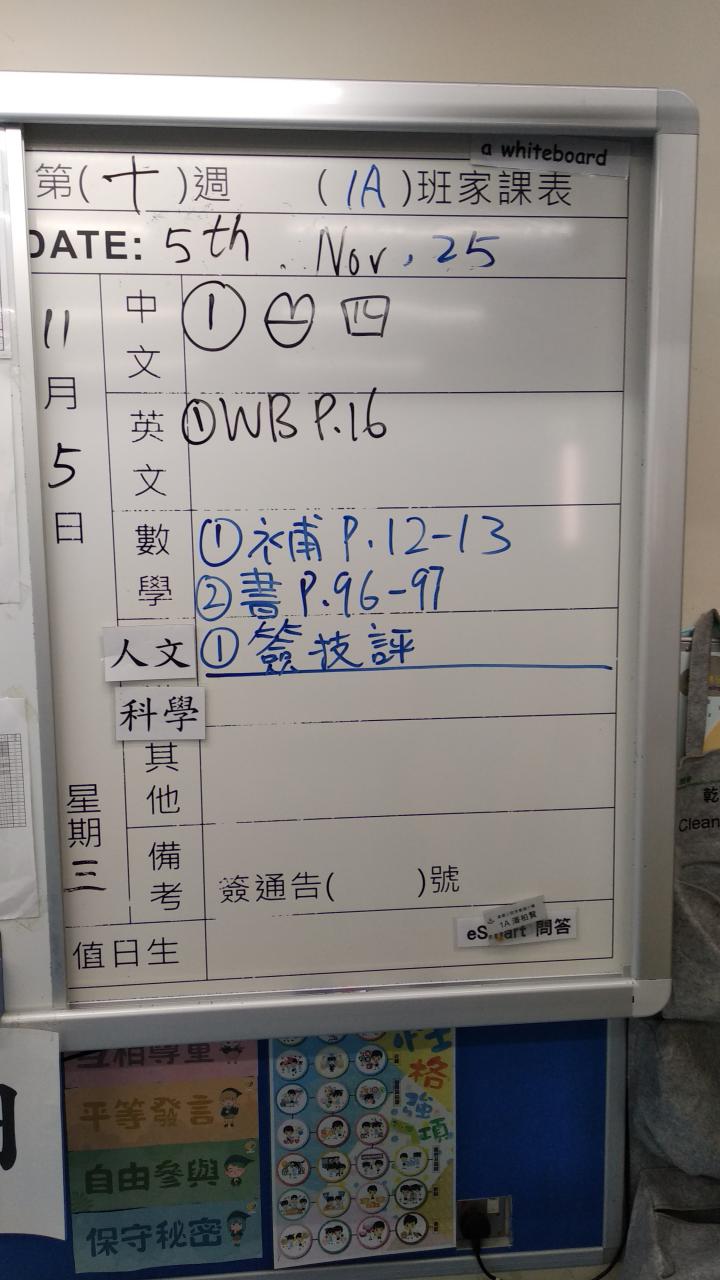 a whiteboard
第(十)週 (1A)班家課表
DATE: 5th . Nov , 25
11月5日
星期三
中文 ① ㊂ 四
英文 ①WB P.16
數學 ①補 P.12-13
②書 P.96-97
人文 ①簽技評
科學
其他
備考 簽通告( )號
值日生
eS art 問答
互相尊重
平等發言
自由參與
保守秘密
性格強項
乾
Clean